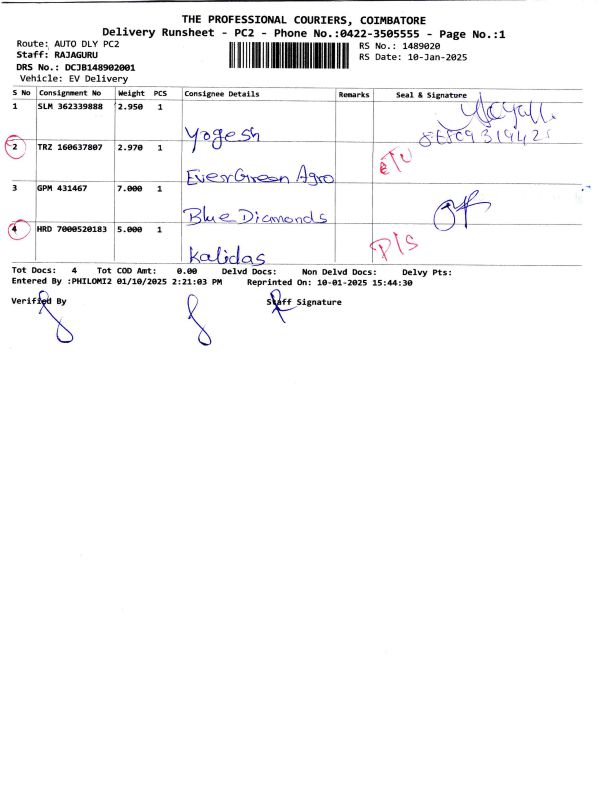 THE PROFESSIONAL COURIERS, COIMBATORE
Delivery Runsheet - PC2 - Phone No.:0422-3505555 - Page No.:1
Route: AUTO DLY PC2
Staff: RAJAGURU
DRS No.: DCJB148902001
Vehicle: EV Delivery
RS No.: 1489020
RS Date: 10-Jan-2025
S No Consignment No Weight PCS Consignee Details Remarks Seal & Signature
1 SLM 362339888 2.950 1 Yogesh
2 TRZ 160637807 2.970 1 EverGreen Agro
3 GPM 431467 7.000 1 Blue Diamonds
4 HRD 7000520183 5.000 1 Kalidas P/S
Tot Docs: 4 Tot COD Amt: 0.00 Delvd Docs: Non Delvd Docs: Delvy Pts:
Entered By :PHILOMI2 01/10/2025 2:21:03 PM Reprinted On: 10-01-2025 15:44:30
Verified By Staff Signature